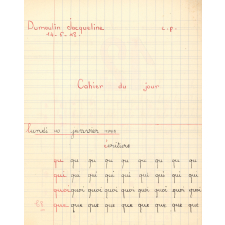 Dumoulin Jacqueline c.p.
Cahier du jour
lundi 10 janvier
écriture
qui qu qu qu qu qu qu qu qu
qui qui qui qui qui qui qui qui
quoi quoi quoi quoi quoi quoi quoi quoi
que que que que que que que